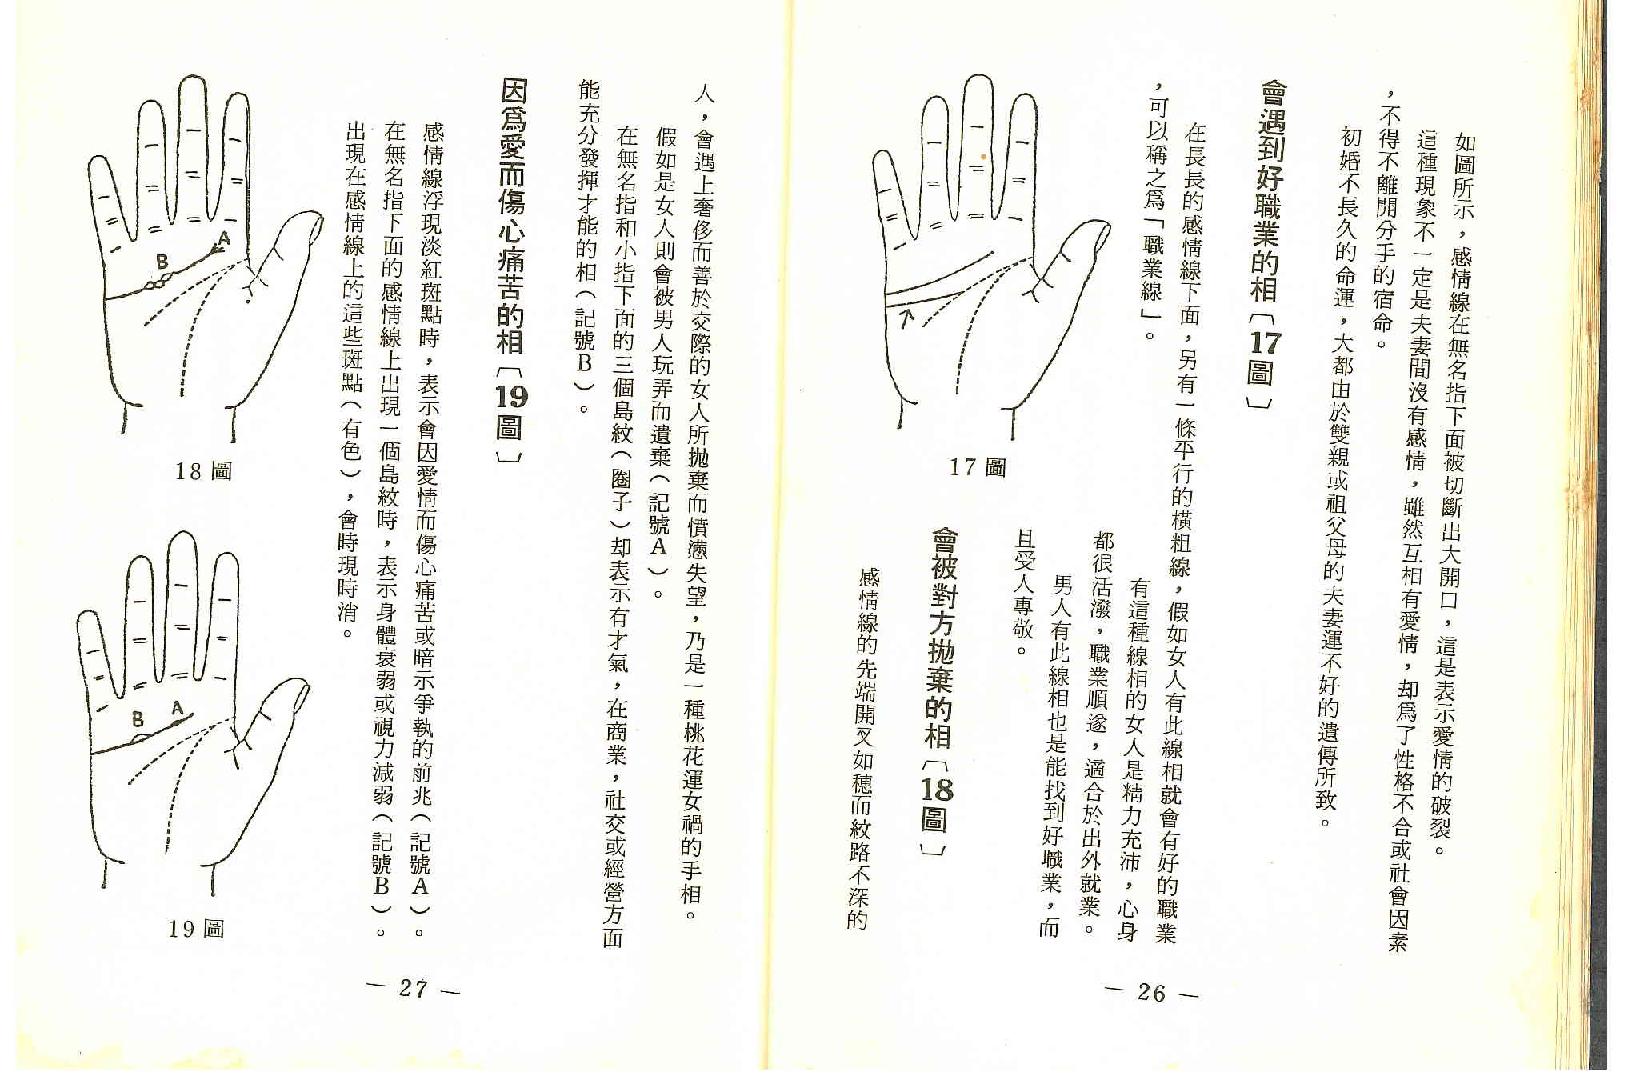 如圖所示，感情線在無名指下面被切斷出大開口，這是表示愛情的破裂。
這種現象不一定是夫妻間沒有感情，雖然互相有愛情，却爲了性格不合或社會因素
，不得不離開分手的宿命。
初婚不長久的命運，大都由於雙親或祖父母的夫妻運不好的遺傳所致。
會遇到好職業的相〔17圖〕
在長長的感情線下面，另有一條平行的橫粗線，假如女人有此線相就會有好的職業
，可以稱之爲「職業線」。
有這種線相的女人是精力充沛，心身
都很活潑，職業順遂，適合於出外就業。
男人有此線相也是能找到好職業，而
且受人專敬。
17圖
會被對方拋棄的相〔18圖〕
感情線的先端開叉如穗而紋路不深的
— 26 —
人，會遇上奢侈而善於交際的女人所拋棄而憤懣失望，乃是一種桃花運女禍的手相。
假如是女人則會被男人玩弄而遺棄（記號A）。
在無名指和小指下面的三個島紋（圈子）却表示有才氣，在商業，社交或經營方面
能充分發揮才能的相（記號B）。
因爲愛而傷心痛苦的相〔19圖〕
感情線浮現淡紅斑點時，表示會因愛情而傷心痛苦或暗示爭執的前兆（記號A）。
在無名指下面的感情線上出現一個島紋時，表示身體衰弱或視力減弱（記號B）。
出現在感情線上的這些斑點（有色），會時現時消。
A
B
18圖
A
B
19圖
— 27 —